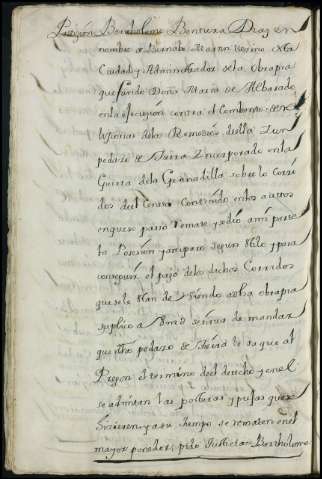 Petizion Bartholome Bentura Diaz en
nombre de Bernabe Magnn vezino desta
Ciudad y Administrador de la Obrapia
que fundo Doña Maria de Albarado
en la ejecuzion contra el Combento de
de los Remedios de ella
pedazo de tierra Encorporado en la
Guerta de la Granadilla sobre los Corri
dos del Censo Contenido en los autos
en que se pasó Remate y se dio a mi parte
la Posesion y amparo segun y para
conseguir el pago de los dichos Corridos
que se le estan deviendo a dha obrapia
suplico a Vmd se sirva de mandar
que dho pedazo de tierra se saque al
Pregon el termino del derecho y en el
se admitan las posturas y pujas que se
hizieren y a su tiempo se rematen en el
mayor ponedor, pido Justicia Bartholome